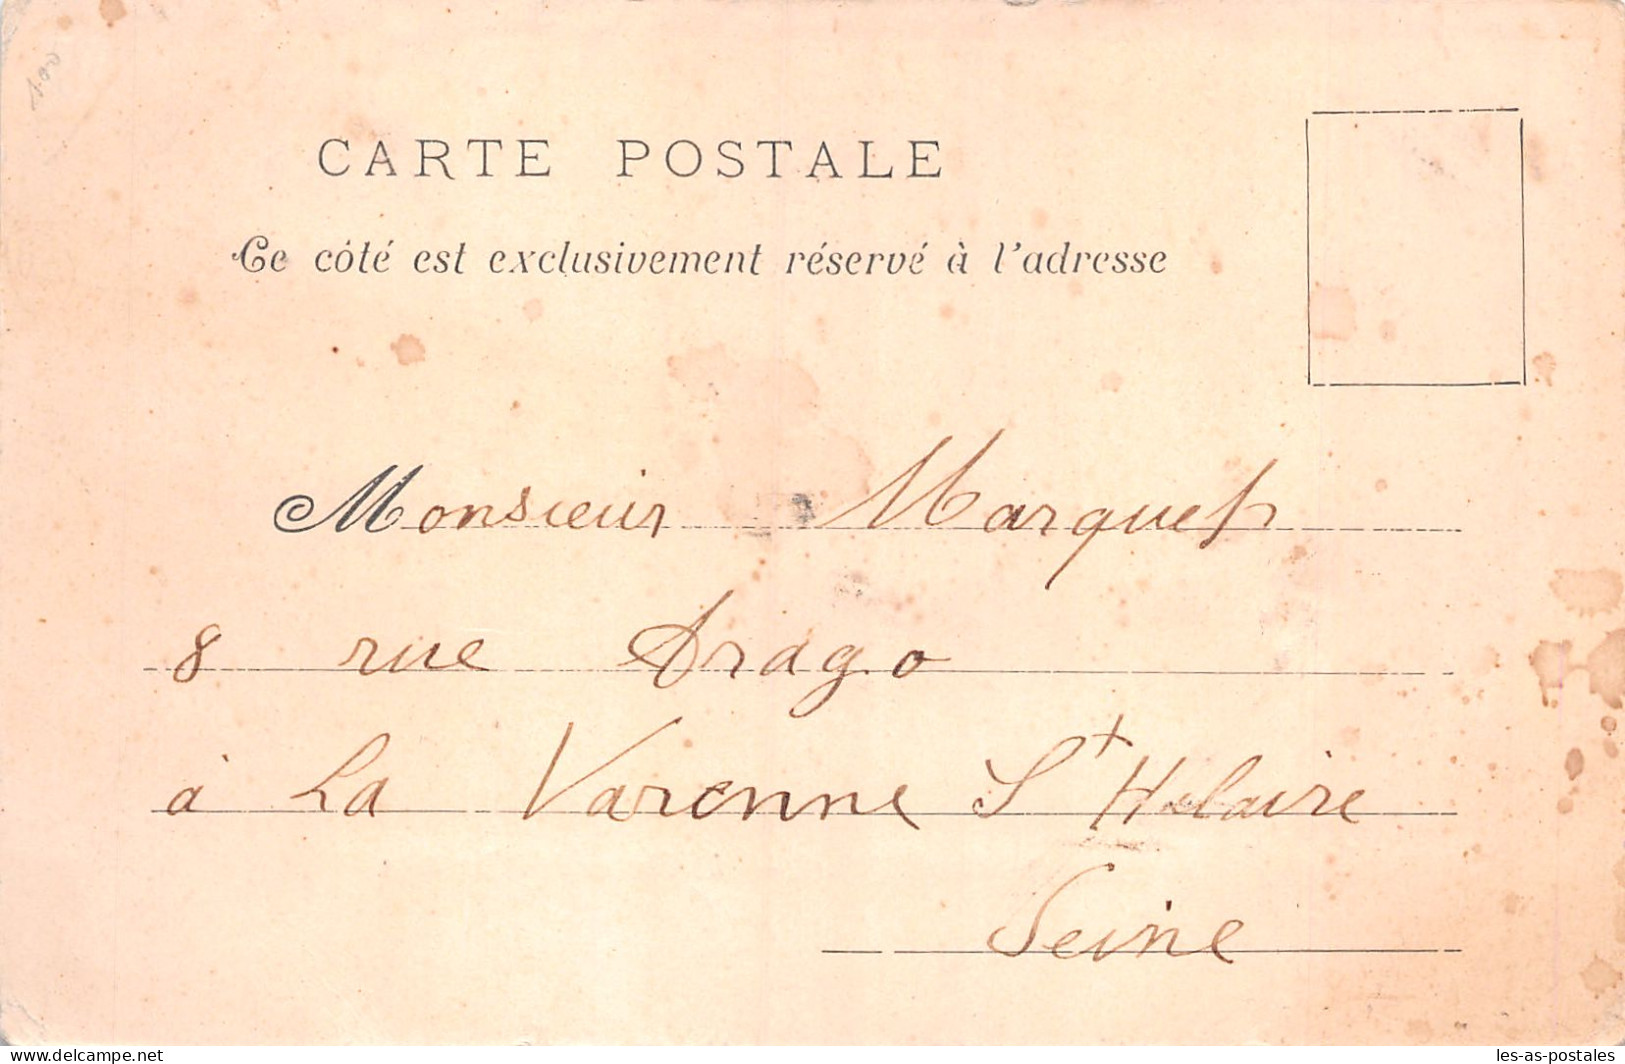 100
CARTE POSTALE
Ce côté est exclusivement réservé à l'adresse
Monsieur Marquet
8 rue Arago
à La Varenne St Hilaire
Seine
www.delcampe.net
les-as-postales